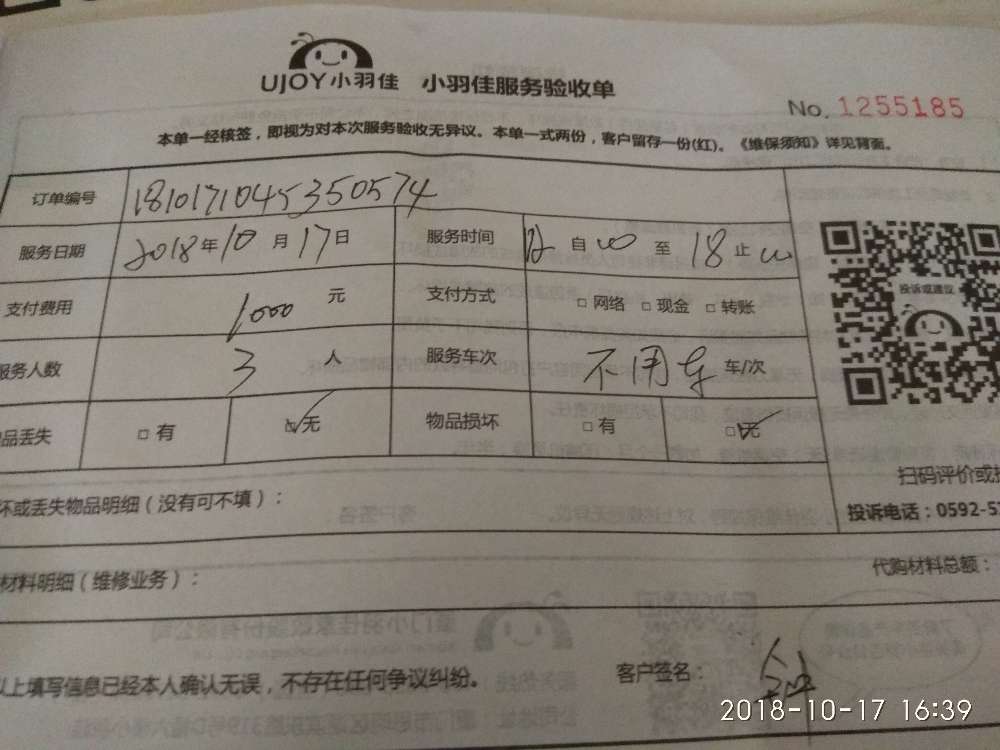 UJOY小羽佳 小羽佳服务验收单
No. 1255185
本单一经核签，即视为对本次服务验收无异议。本单一式两份，客户留存一份(红)。《维保须知》详见背面。
订单编号 181017104535057４
服务日期 2018年10月17日 服务时间 自 至 18 止
支付费用 1000 元 支付方式 □网络 □现金 □转账
服务人数 3 人 服务车次 不用车 车/次
品丢失 □有 □无 物品损坏 □有 □无
投诉或建议
扫码评价或
坏或丢失物品明细（没有可不填）：
投诉电话：0592-5
材料明细（维修业务）： 代购材料总额：
以上填写信息已经本人确认无误，不存在任何争议纠纷。 客户签名：
2018-10-17 16:39